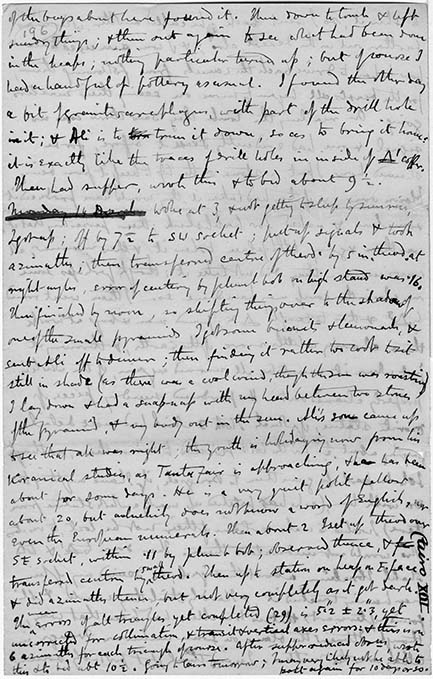 of the boys about have passed it. Then down to tomb & left
196
sundry things; & then out again to see what had been done
in the heaps; nothing particular turned up; but of course I
had a handful of pottery as usual. I found the other day
a bit of granite sarcophagus, with part of the drill hole
in it; & Ali is to trim it down, so as to bring it home;
it is exactly like the traces of drill holes in inside of coffer.
Then had supper, wrote this & to bed about 9½.
woke at 3, & not getting to sleep by sunrise,
I got up; off by 7½ to SW socket; put up signals & took
azimuths; then transferred centre of theod. by 5 in theod at
right angles, error of centering by plumb bob on high stand was .16,
This finished by noon, so shifting things over to the shadow of
one of the small pyramids I got some biscuit & lemonade, &
sent Ali off to dinner; then finding it rather too cool to sit
still in shade (as there was a cool wind, though the sun was roasting)
I lay down & had a snap nap with my head between two stones
of the pyramid & my body out in the sun. Ali's son came up
to see that all was right; the youth is holidaying now from his
Koranical studies, as Tanta fair is approaching, & he has been
about for some days. He is a very quiet polite fellow
about 20, but unluckily does not know a word of English, nor
even the European numerals. Then about 2 I set up theod over
SE socket, within .11 by plumb bob; observed thence, &
transferred centers by 5 inch theod. Then up to station on heap on E face
& did azimuths thence, but not very completely as it got dark.
The mean errors of all triangles yet completed (29) is 5.2 ± 2.3, yet
uncorrected for collimation, & transit & vertical axes errors & this is on
6 azimuths for each triangle of course. After supper reduced obs., wrote
this & to bed abt 10½. Going to Cairo tomorrow; I may very likely not be able to
post again for 10 days or so.
Cairo XIII